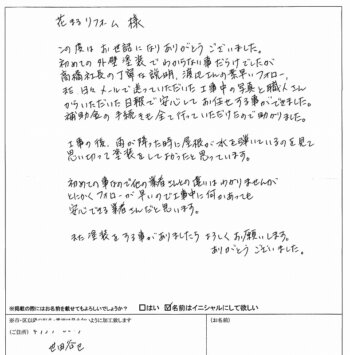 花まるリフォーム 様
この度は お世話になり ありがとう ございました。
初めての 外壁塗装で わからない事だらけでしたが
高橋社長の 丁寧な説明、渡辺さんの素早いフォロー、
又、日々メールで送っていただいた工事中の写真と職人さん
からいただいた日報で安心してお任せする事ができました。
補助金の手続きも全て行っていただけたので助かりました。
工事の後、雨が降った時に屋根が水を弾いているのを見て
思い切って塗装をしてよかったと思っています。
初めての事なので他の業者さんとの違いはわかりませんが
とにかくフォローが早いので工事中に何があっても
安心できる業者さんだと思います。
また塗装をする事がありましたらよろしくお願いします。
ありがとうございました。
※掲載の際にはお名前を載せてもよろしいでしょうか？ □はい ☑名前はイニシャルにして欲しい
ように加工致します
(ご住所)
(お名前)
世田谷区